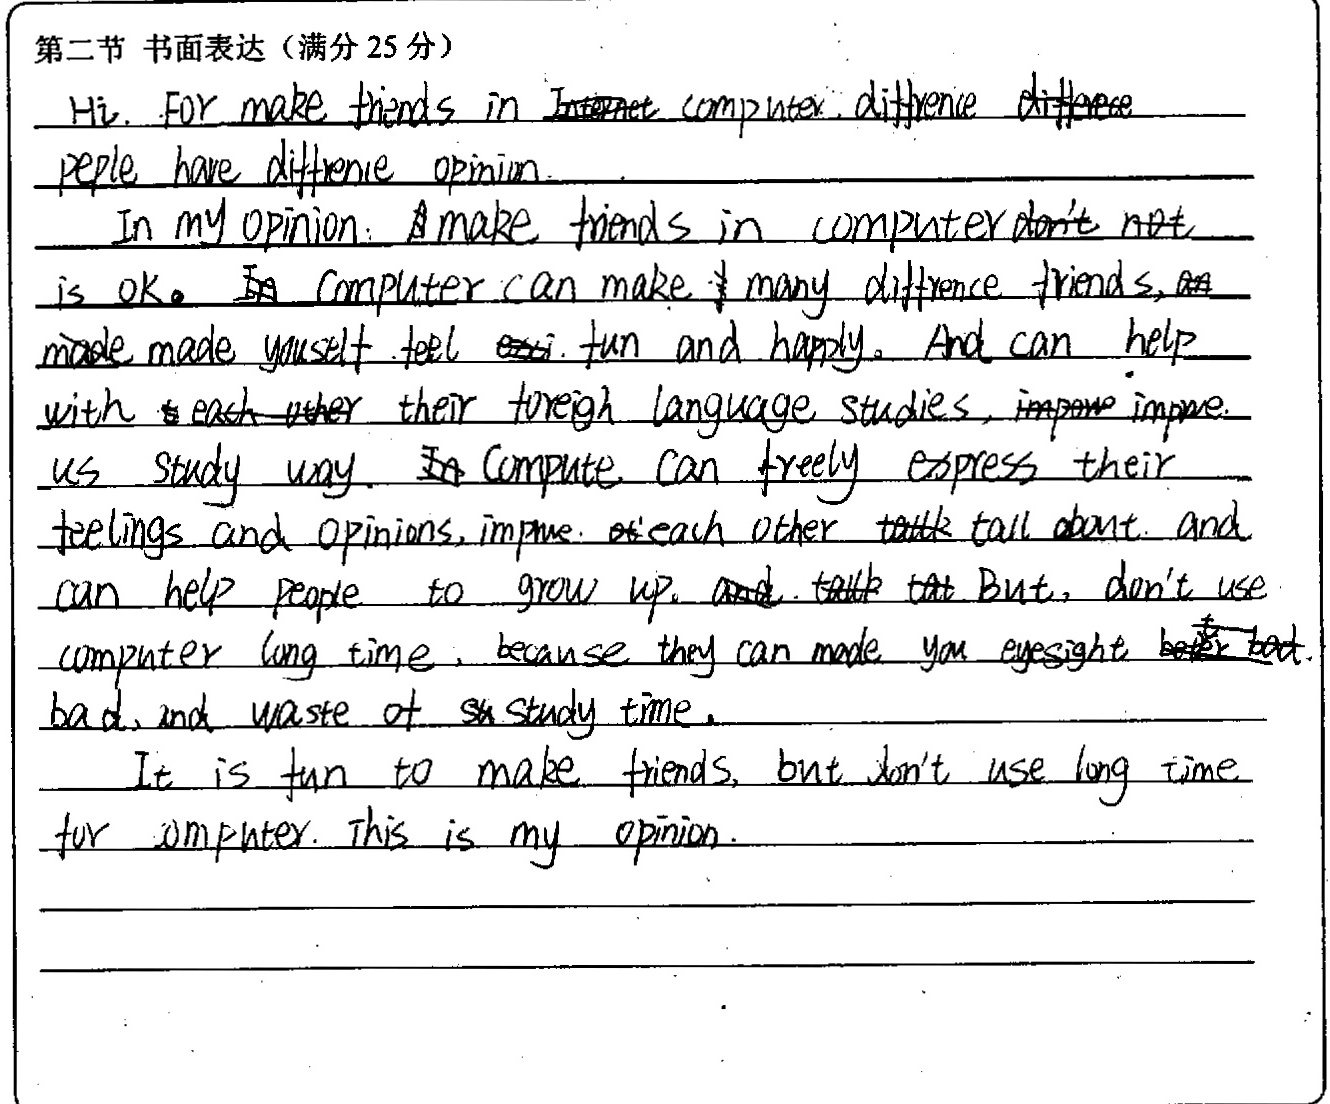 第二节 书面表达（满分 25 分）
Hi. For make friends in computer. diffrence
peple have diffrenie opinion.
In my opinion. make friends in computer
is ok. Computer can make many diffrence friends,
made youself feel fun and happly. And can help
with their foreigh language studies, impove
us study way. Compute can freely express their
feelings and opinions, impve. each other tall about. and
can help people to grow up. But, don't use
computer long time, because they can made you eyesight
bad, and waste of study time.
It is fun to make friends, but don't use long time
for computer. This is my opinion.